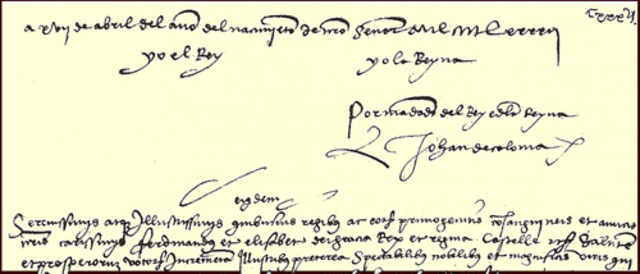 cxxxvi
a xvii de abril del año del nacimiēto de nr̄o señor Mil CCCC Lxxxxii
yo el Rey yo la Reyna
Por mādado del Rey e dela Reyna
Johan de coloma
eiusdem
Serenissimis atq; Illustrissimis quibusuis regibus ac eor primogenitis cōsanguineis et amicis
nr̄is carissimis ferdinandus et elisabet dei gracia Rex et regina Castelle salutē
et prosperorum votor Incremetū Illustribus preterea Spectabilibus nobilibus et magnificis viris